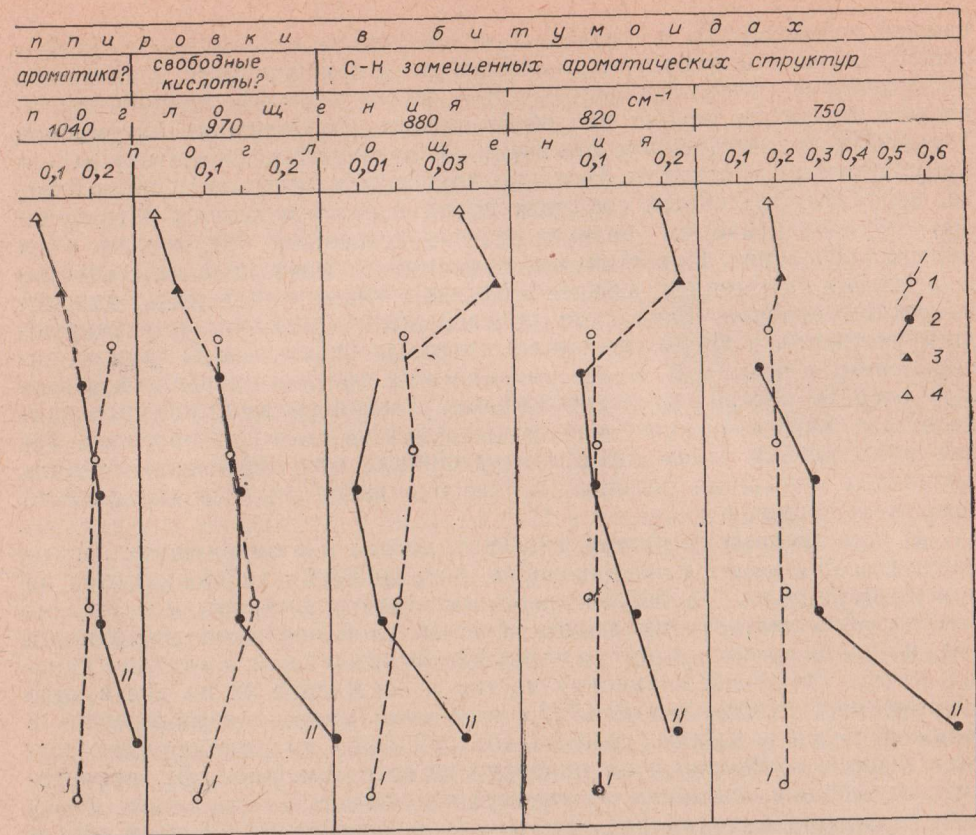 ппировки в битумоидах
ароматика? свободные кислоты? С-Н замещенных ароматических структур
поглощения см⁻¹
1040 970 880 820 750
поглощения
0,1 0,2 0,1 0,2 0,01 0,03 0,1 0,2 0,1 0,2 0,3 0,4 0,5 0,6
1
2
3
4
II II II II
I I I I